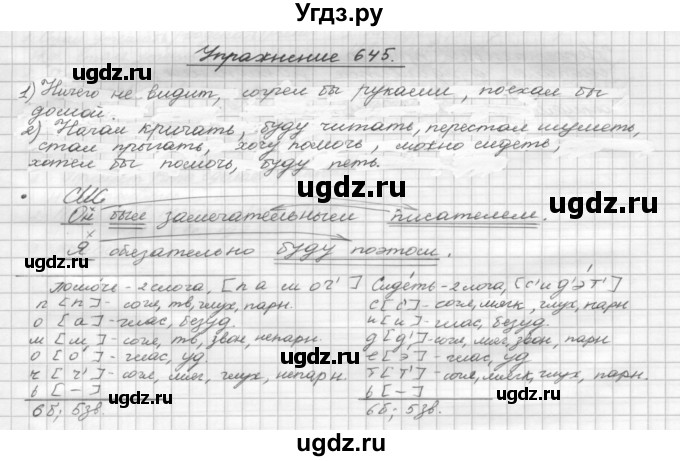 Угдз.ру
Упражнение 645.
1) Ничего не видит, согрел бы руками, поехал бы
домой.
2) Начал кричать, буду читать, перестал шуметь,
стал прыгать, хочу помочь, можно сидеть,
хотел бы помочь, буду петь.
Он был замечательным писателем.
Я обязательно буду поэтом.
Помочь - 2 слога, [п а м о ч']
п [п] - согл, тв, глух, парн.
о [а] - глас, безуд.
м [м] - согл, тв, звон, непарн.
о [о'] - глас, уд.
ч [ч'] - согл, мяг, глух, непарн.
ь [-]
6б; 5зв.
Сидеть - 2 лога, [с'и д'э'т']
с [с'] - согл, мягк, глух, парн
и [и] - глас, безуд.
д [д'] - согл, мяг, звон, парн
е [э] - глас, уд.
т [т'] - согл, мягк, глух, парн.
ь [-]
6б; 5зв.
ugdz.ru
ugdz.ru
ugdz.ru
ugdz.ru
ugdz.ru
ugdz.ru
ugdz.ru
ugdz.ru
ugdz.ru
ugdz.ru